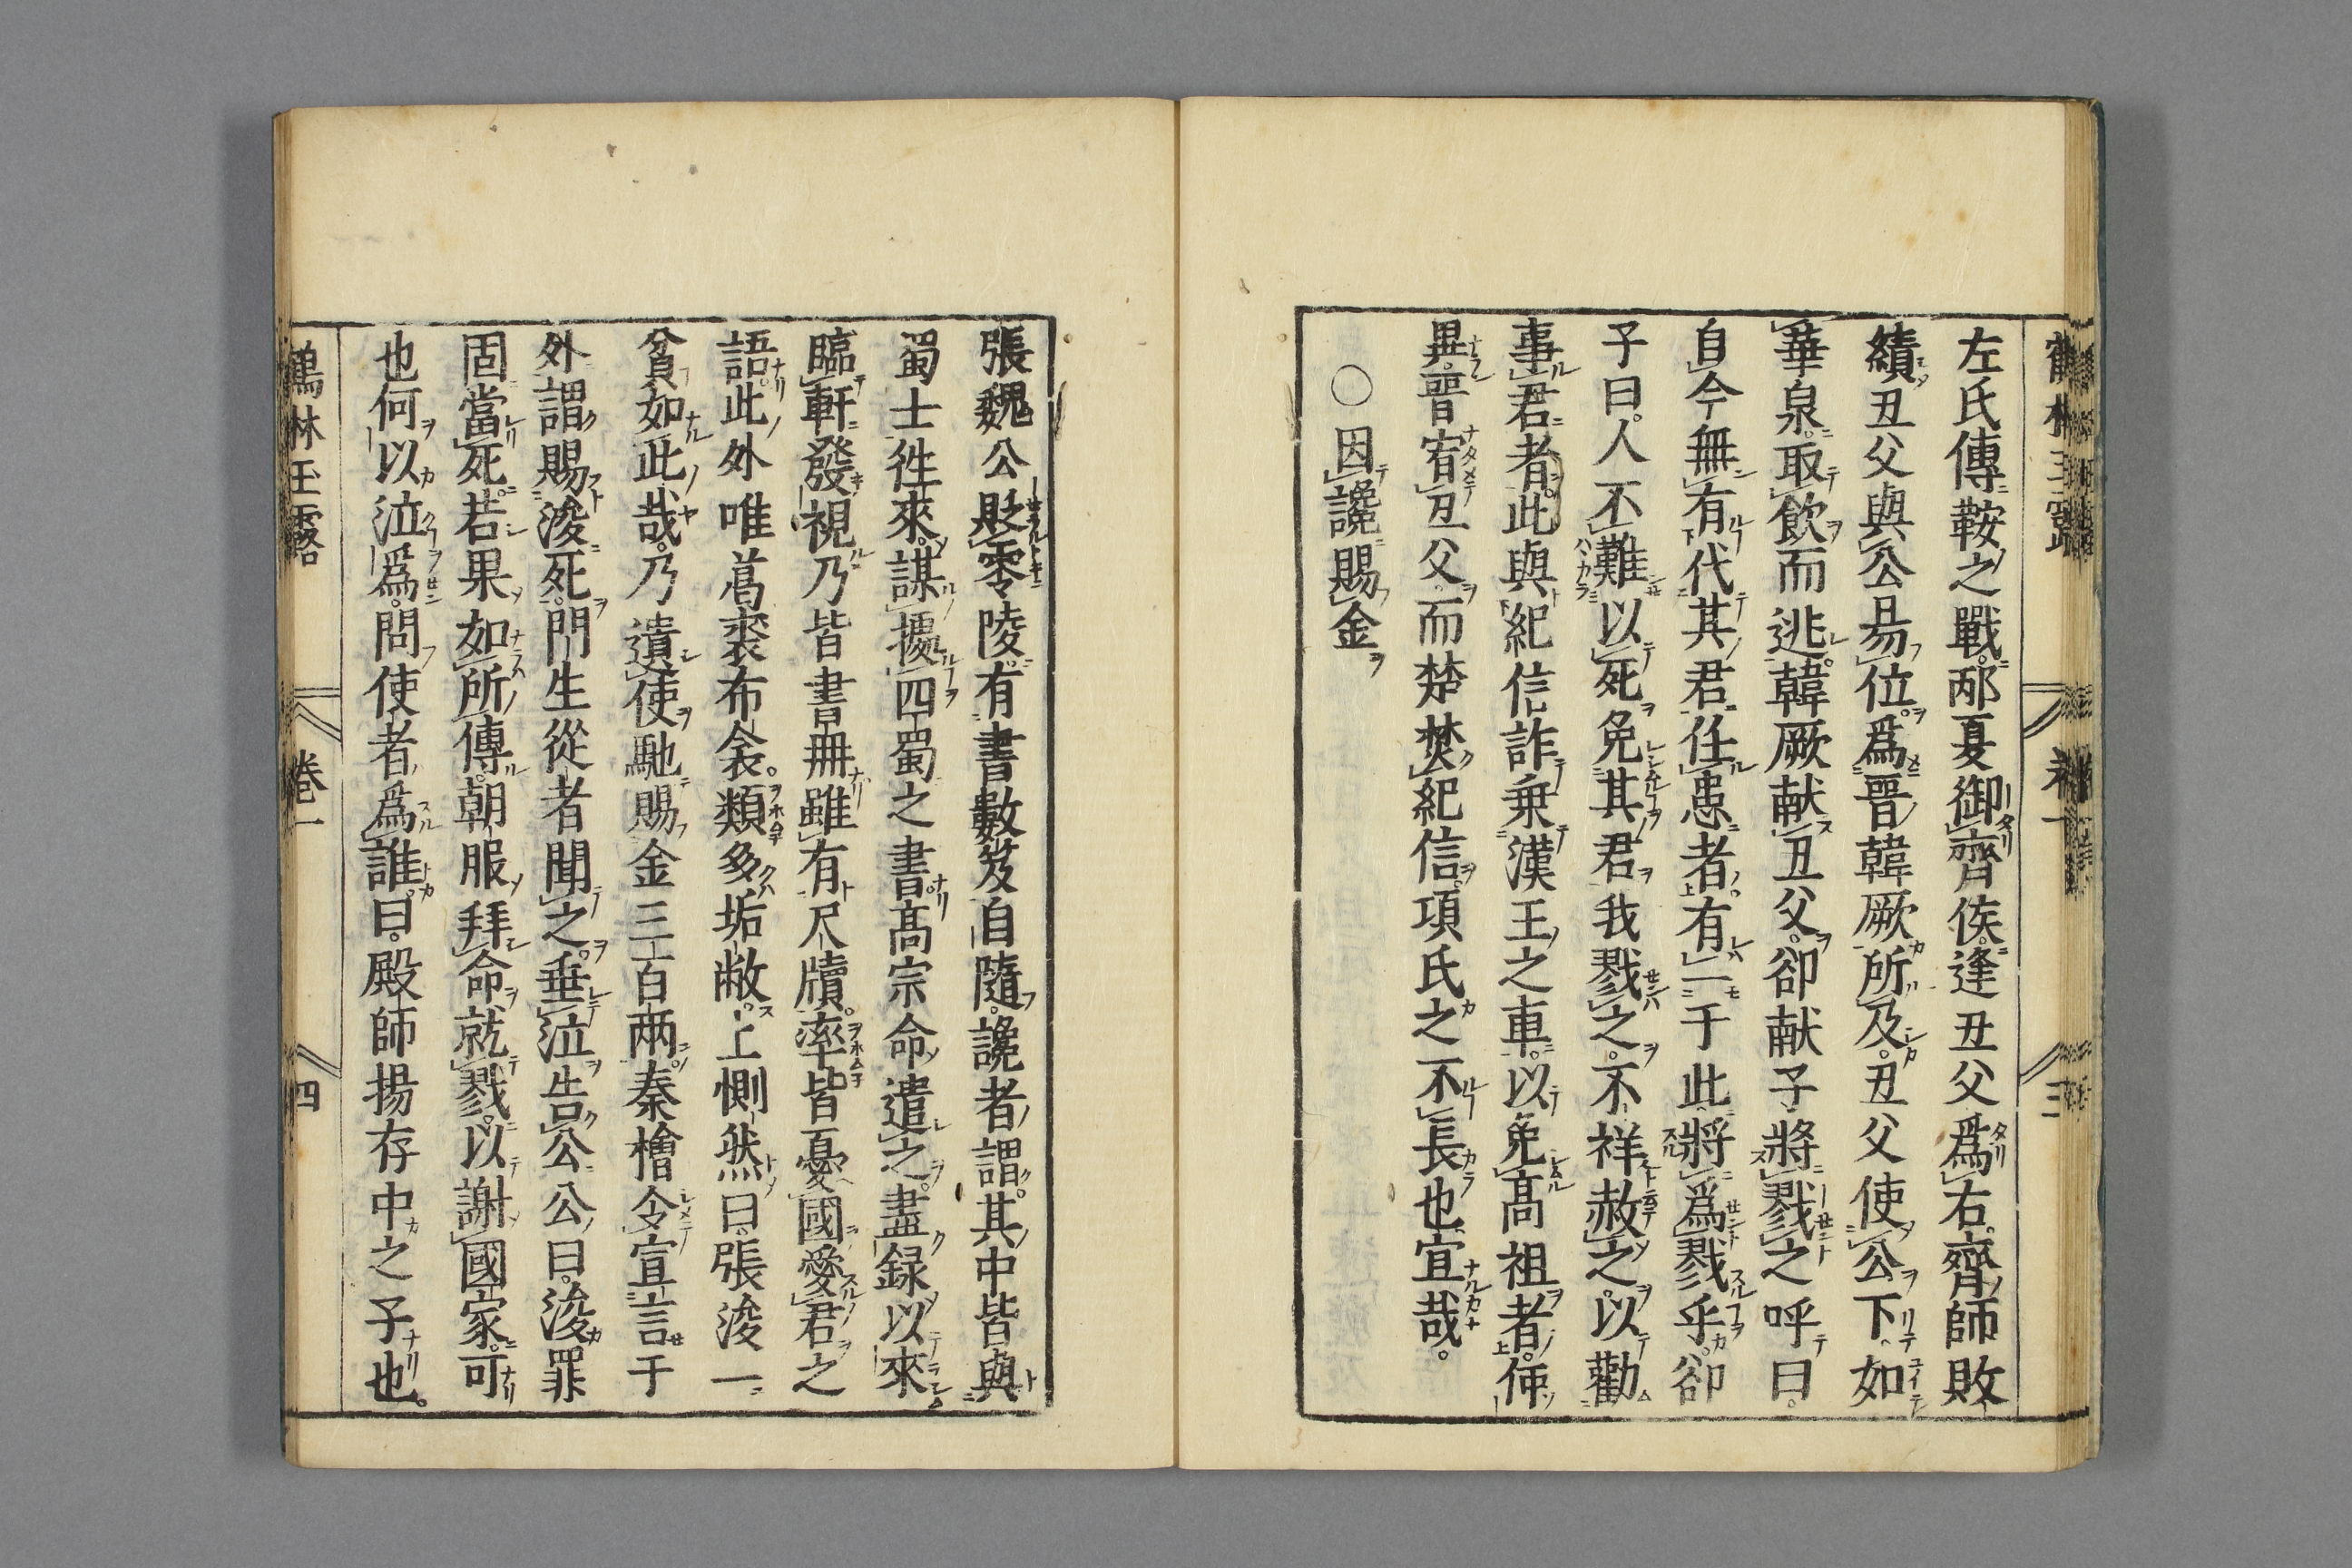 左氏傳鞍之戰邴夏御齊侯逢丑父爲右齊師敗
績丑父與公昜位爲晋韓厥所及丑父使公下如
華泉取飲而逃韓厥献丑父卻献子將戮之呼曰
自今無有代其君任患者有一于此將爲戮乎卻
子曰人不難以死免其君我戮之不祥赦之以勸
事君者此與紀信詐乗漢王之車以免髙祖者
異晋宥丑父而楚焚紀信項氏之不長也宜哉
〇因讒賜金
張魏公貶零陵有書數笈自隨讒者謂其中皆與
蜀士徃來謀擾四蜀之書髙宗命遣之盡録以來
臨軒發視乃皆書冊雖有尺牘率皆憂國愛君之
語此外唯葛裘布衾類多垢敝上惻然曰張浚一
貧如此哉乃遣使馳賜金三百兩秦檜令宣言于
外謂賜浚死門生從者聞之垂泣告公公曰浚罪
固當死若果如所傳朝服拜命就戮以謝國家可
也何以泣爲問使者爲誰曰殿師揚存中之子也
鶴林玉露 卷一 四